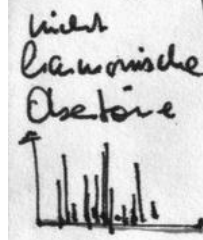 nicht
harmonische
Obertöne